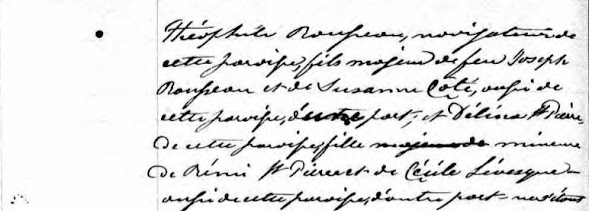 Théophile Rousseau, navigateur de
cette paroisse, fils majeur de feu Joseph
Rousseau et de Suzanne Côté, aussi de
cette paroisse, d'une part; et Délisca St Pierre,
de cette paroisse, fille majeure de mineure
de Rémi St Pierre et de Cécile Lévesque
aussi de cette paroisse, d'autre part nous étant